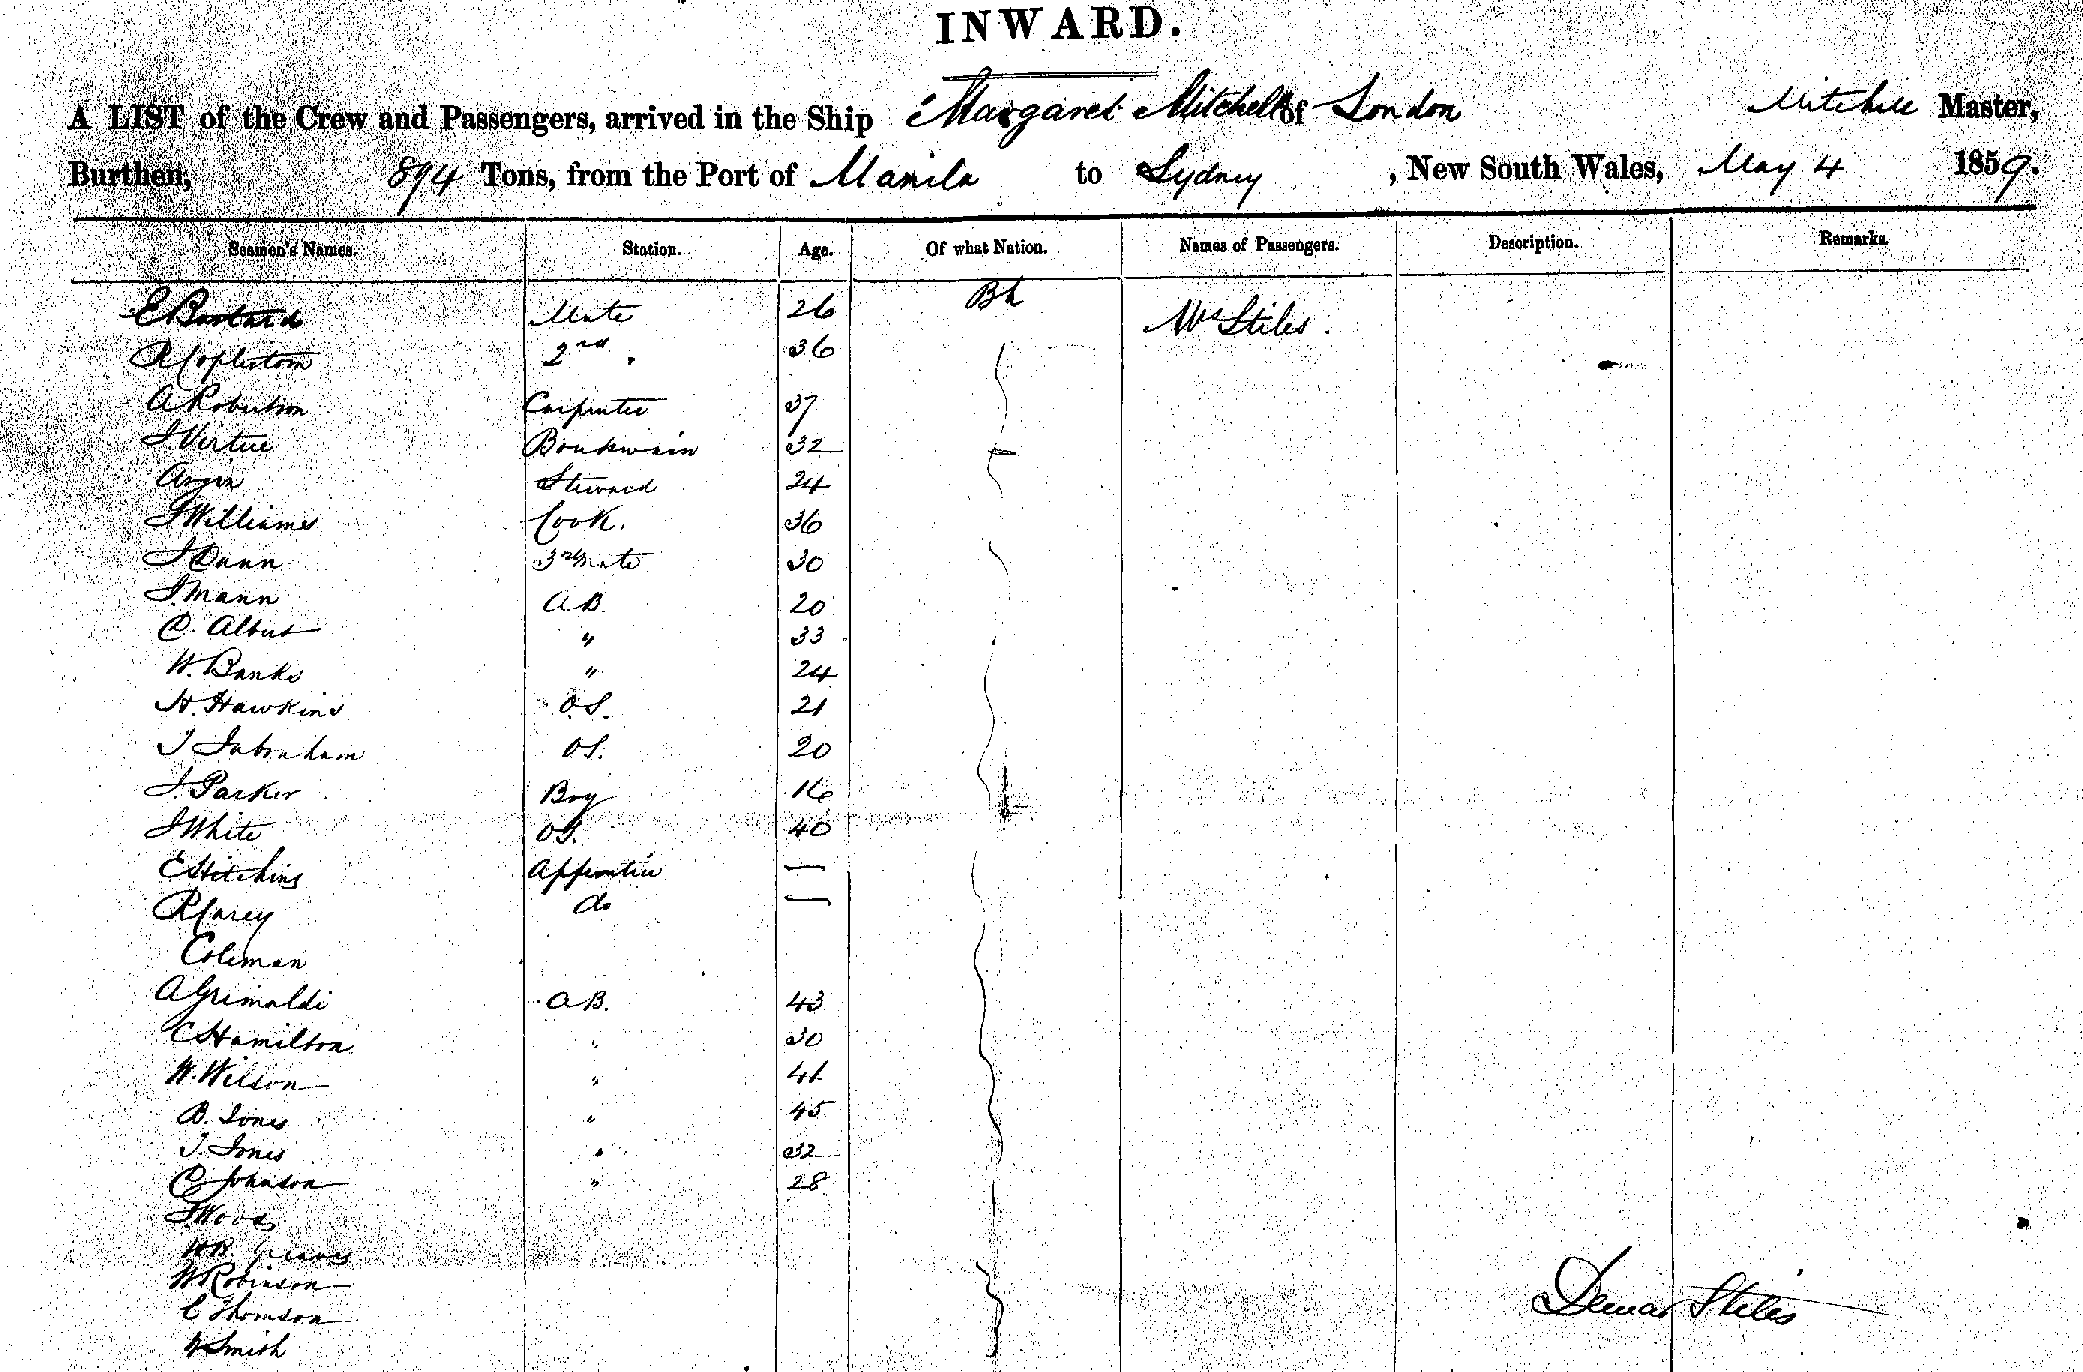 INWARD.
A LIST of the Crew and Passengers, arrived in the Ship Margaret Mitchell of London Mitchell Master,
Burthen, 894 Tons, from the Port of Manila to Sydney, New South Wales, May 4 1859.
Seamen's Names. Station. Age. Of what Nation. Names of Passengers. Description. Remarks.
E Bastard Mate 26 Bh Mrs Stiles.
R Coplestom 2nd " 36
A Robertson Carpenter 37
J Virtue Boatswain 32
Steward 24
J Williams Cook. 36
J Dann 3rd Mate 30
J. Mann A B. 20
C. Albert " 33
W. Banks " 24
H. Hawkins O.S. 21
T Jabraham O S. 20
J. Parker Boy 16
J White O S. 40
E Hitchins Apprentice —
R Carey do —
Coleman
A Grimaldi A B. 43
C Hamilton " 30
W. Wilson " 41
B. Jones " 45
T. Jones " 32
C Johnson " 28
J Wood
W B Greaves
W Robinson
C Thomson
W Smith
Stiles